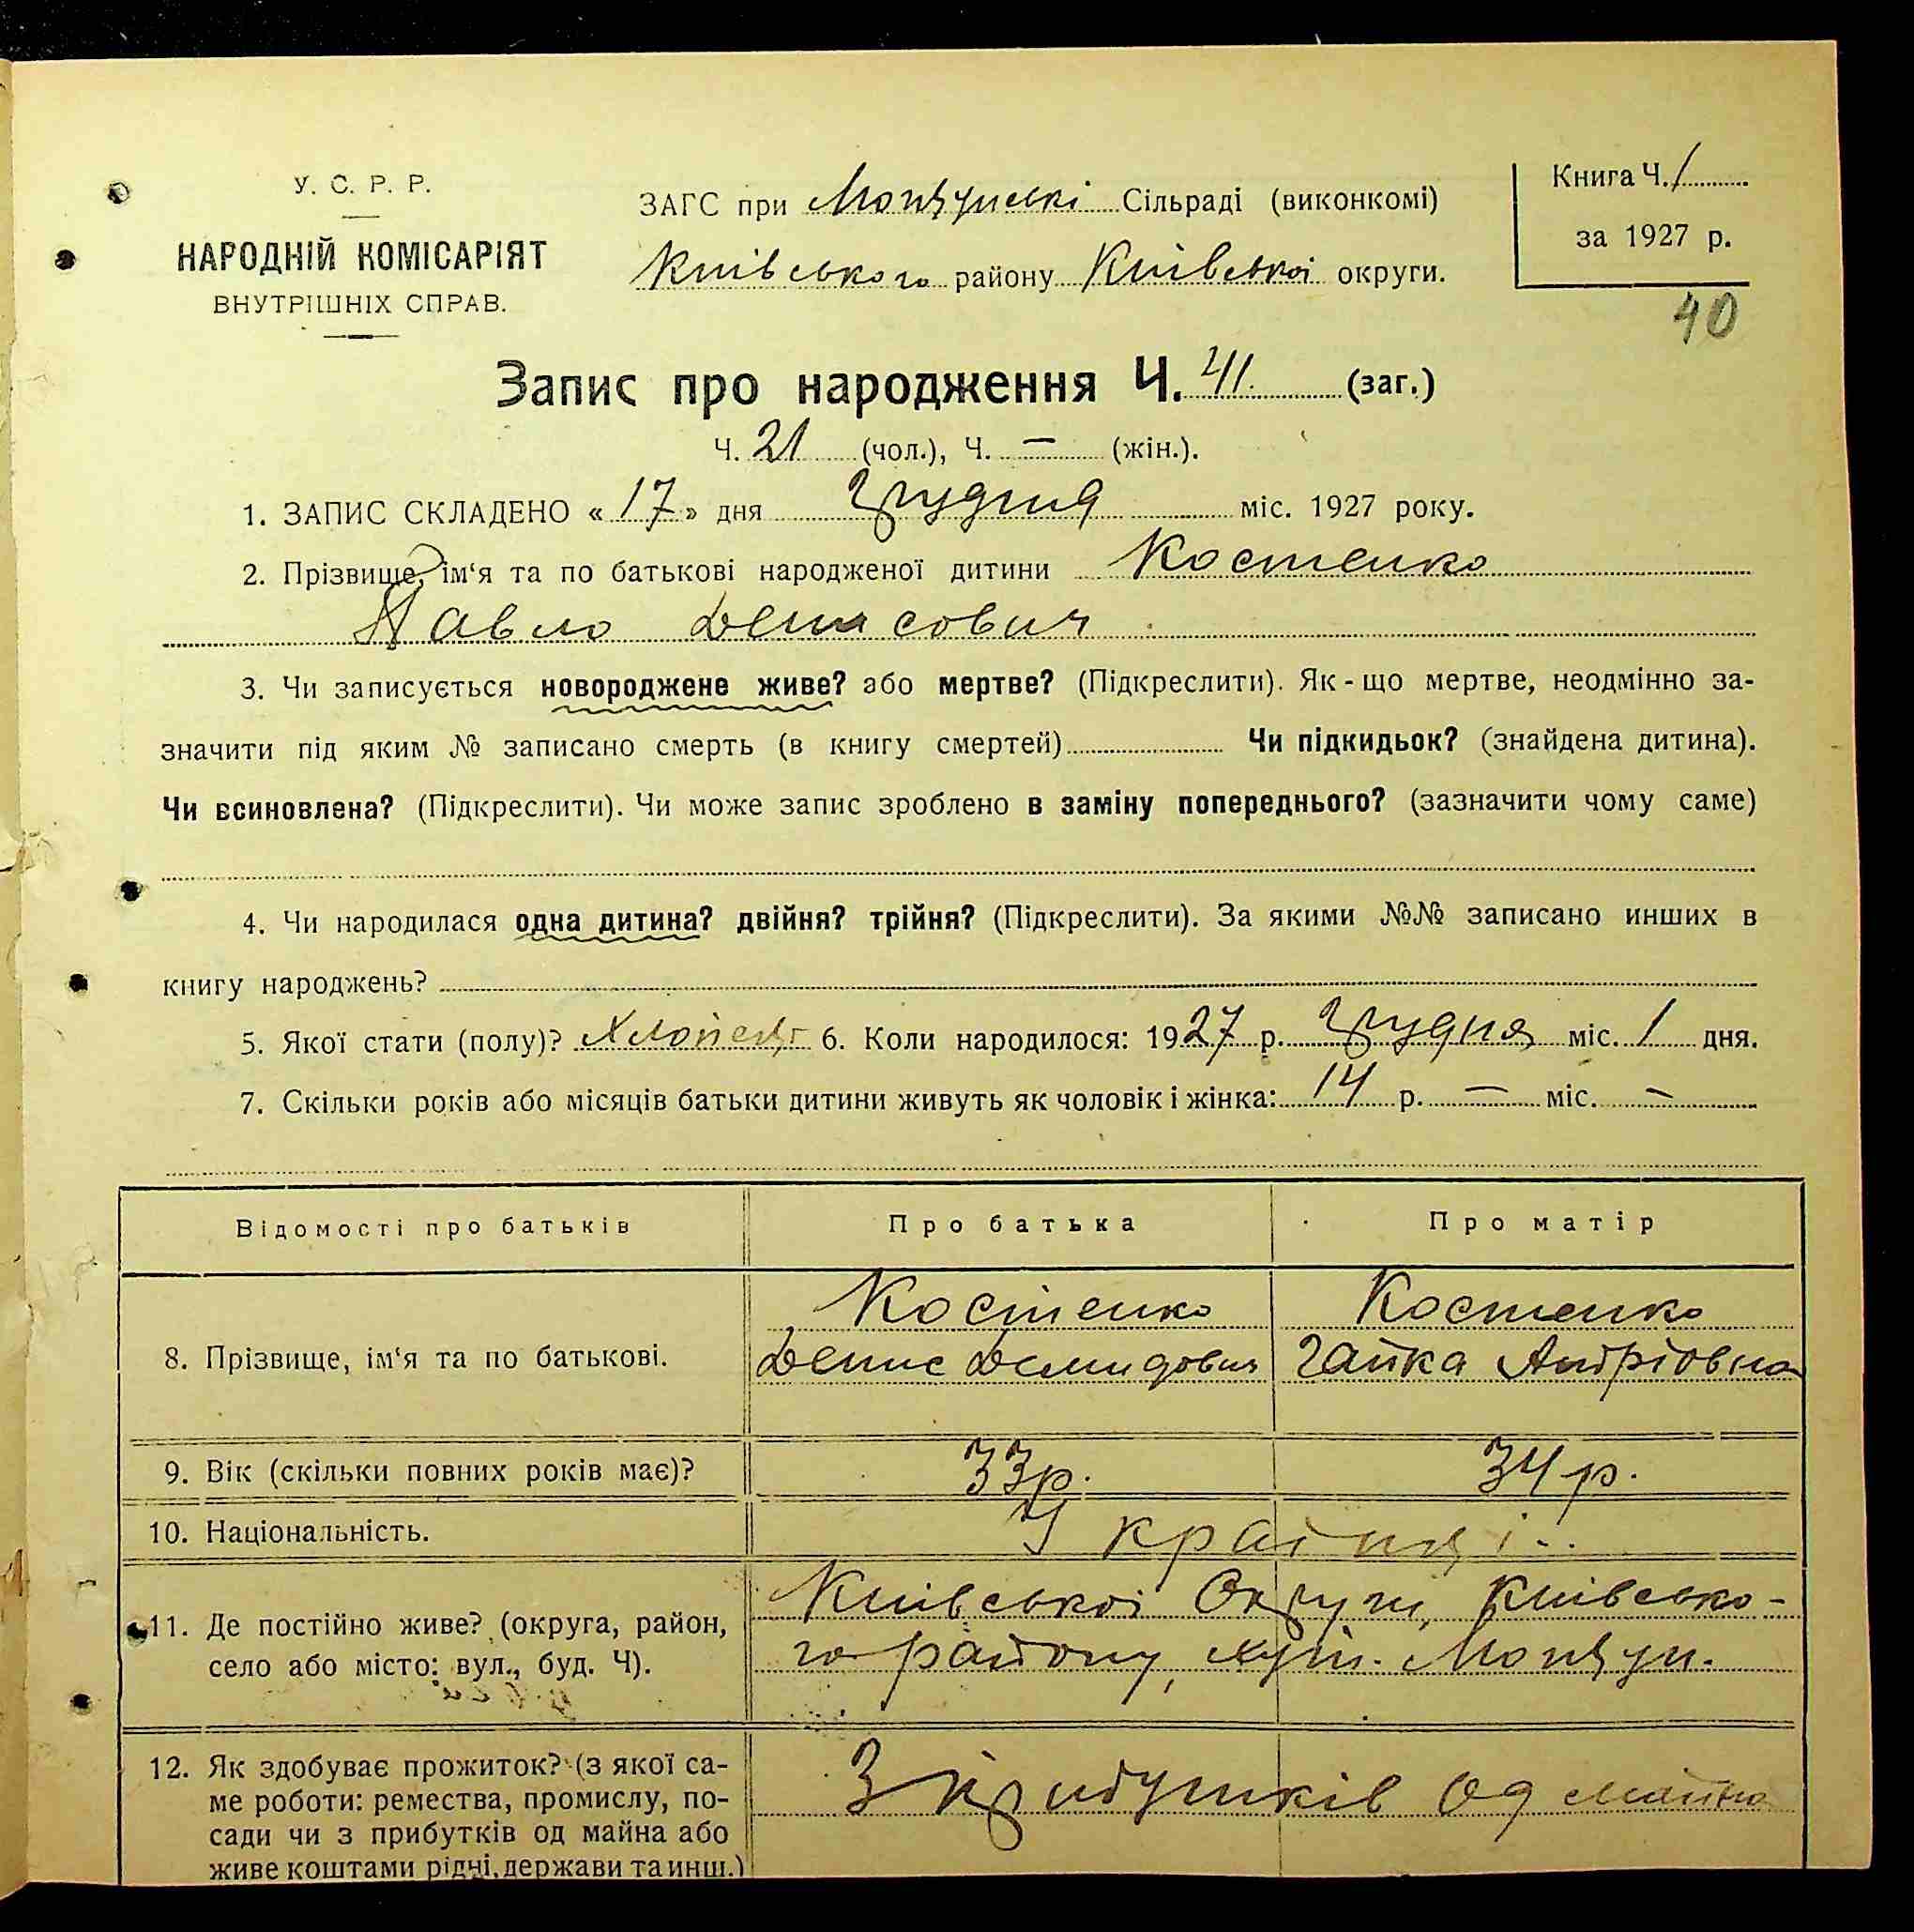 У. С. Р. Р.
НАРОДНІЙ КОМІСАРІЯТ
ВНУТРІШНІХ СПРАВ.
ЗАГС при Мощунські Сільраді (виконкомі)
Київського району Київської округи.
Книга Ч. 1
за 1927 р.
40
Запис про народження Ч. 41. (заг.)
Ч. 21 (чол.), Ч. — (жін.).
1. ЗАПИС СКЛАДЕНО «17» дня Грудня міс. 1927 року.
2. Прізвище, ім'я та по батькові народженої дитини Костенко
Павло Денисович
3. Чи записується новороджене живе? або мертве? (Підкреслити). Як-що мертве, неодмінно за-
значити під яким № записано смерть (в книгу смертей) Чи підкидьок? (знайдена дитина).
Чи всиновлена? (Підкреслити). Чи може запис зроблено в заміну попереднього? (зазначити чому саме)
4. Чи народилася одна дитина? двійня? трійня? (Підкреслити). За якими №№ записано инших в
книгу народжень?
5. Якої стати (полу)? Хлопець 6. Коли народилося: 1927 р. Грудня міс. 1 дня.
7. Скільки років або місяців батьки дитини живуть як чоловік і жінка: 14 р. — міс. —
Відомості про батьків Про батька Про матір
8. Прізвище, ім'я та по батькові.
Костенко
Денис Демидович
Костенко
Гапка Андріовна
9. Вік (скільки повних років має)? 33р. 34р.
10. Національність. Українці..
11. Де постійно живе? (округа, район,
село або місто: вул., буд. Ч).
Київської Округи, Київсько-
го району, хут. Мощун.
12. Як здобуває прожиток? (з якої са-
ме роботи: ремества, промислу, по-
сади чи з прибутків од майна або
живе коштами рідні, держави та инш.)
З прибутків од майна